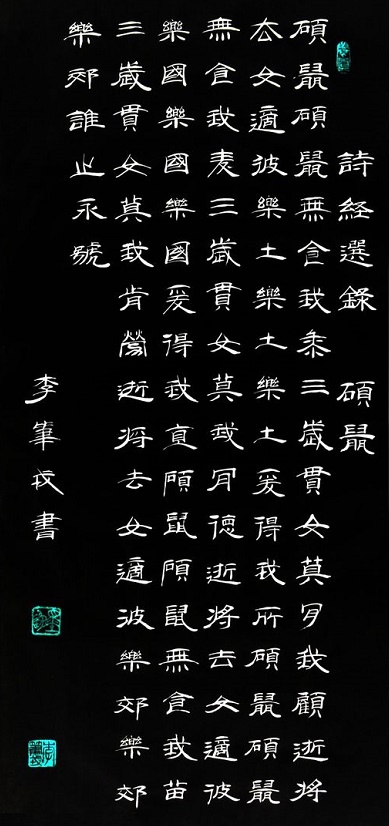 詩経選錄 碩鼠
碩鼠碩鼠無食我黍三歲貫女莫肎我顧逝將
去女適彼樂土樂土樂土爰得我所碩鼠碩鼠
無食我麦三歲貫女莫我肎德逝將去女適彼
樂國樂國樂國爰得我直碩鼠碩鼠無食我苗
三歲貫女莫我肯勞逝將去女適彼樂郊樂郊
樂郊誰之永號
李筆書